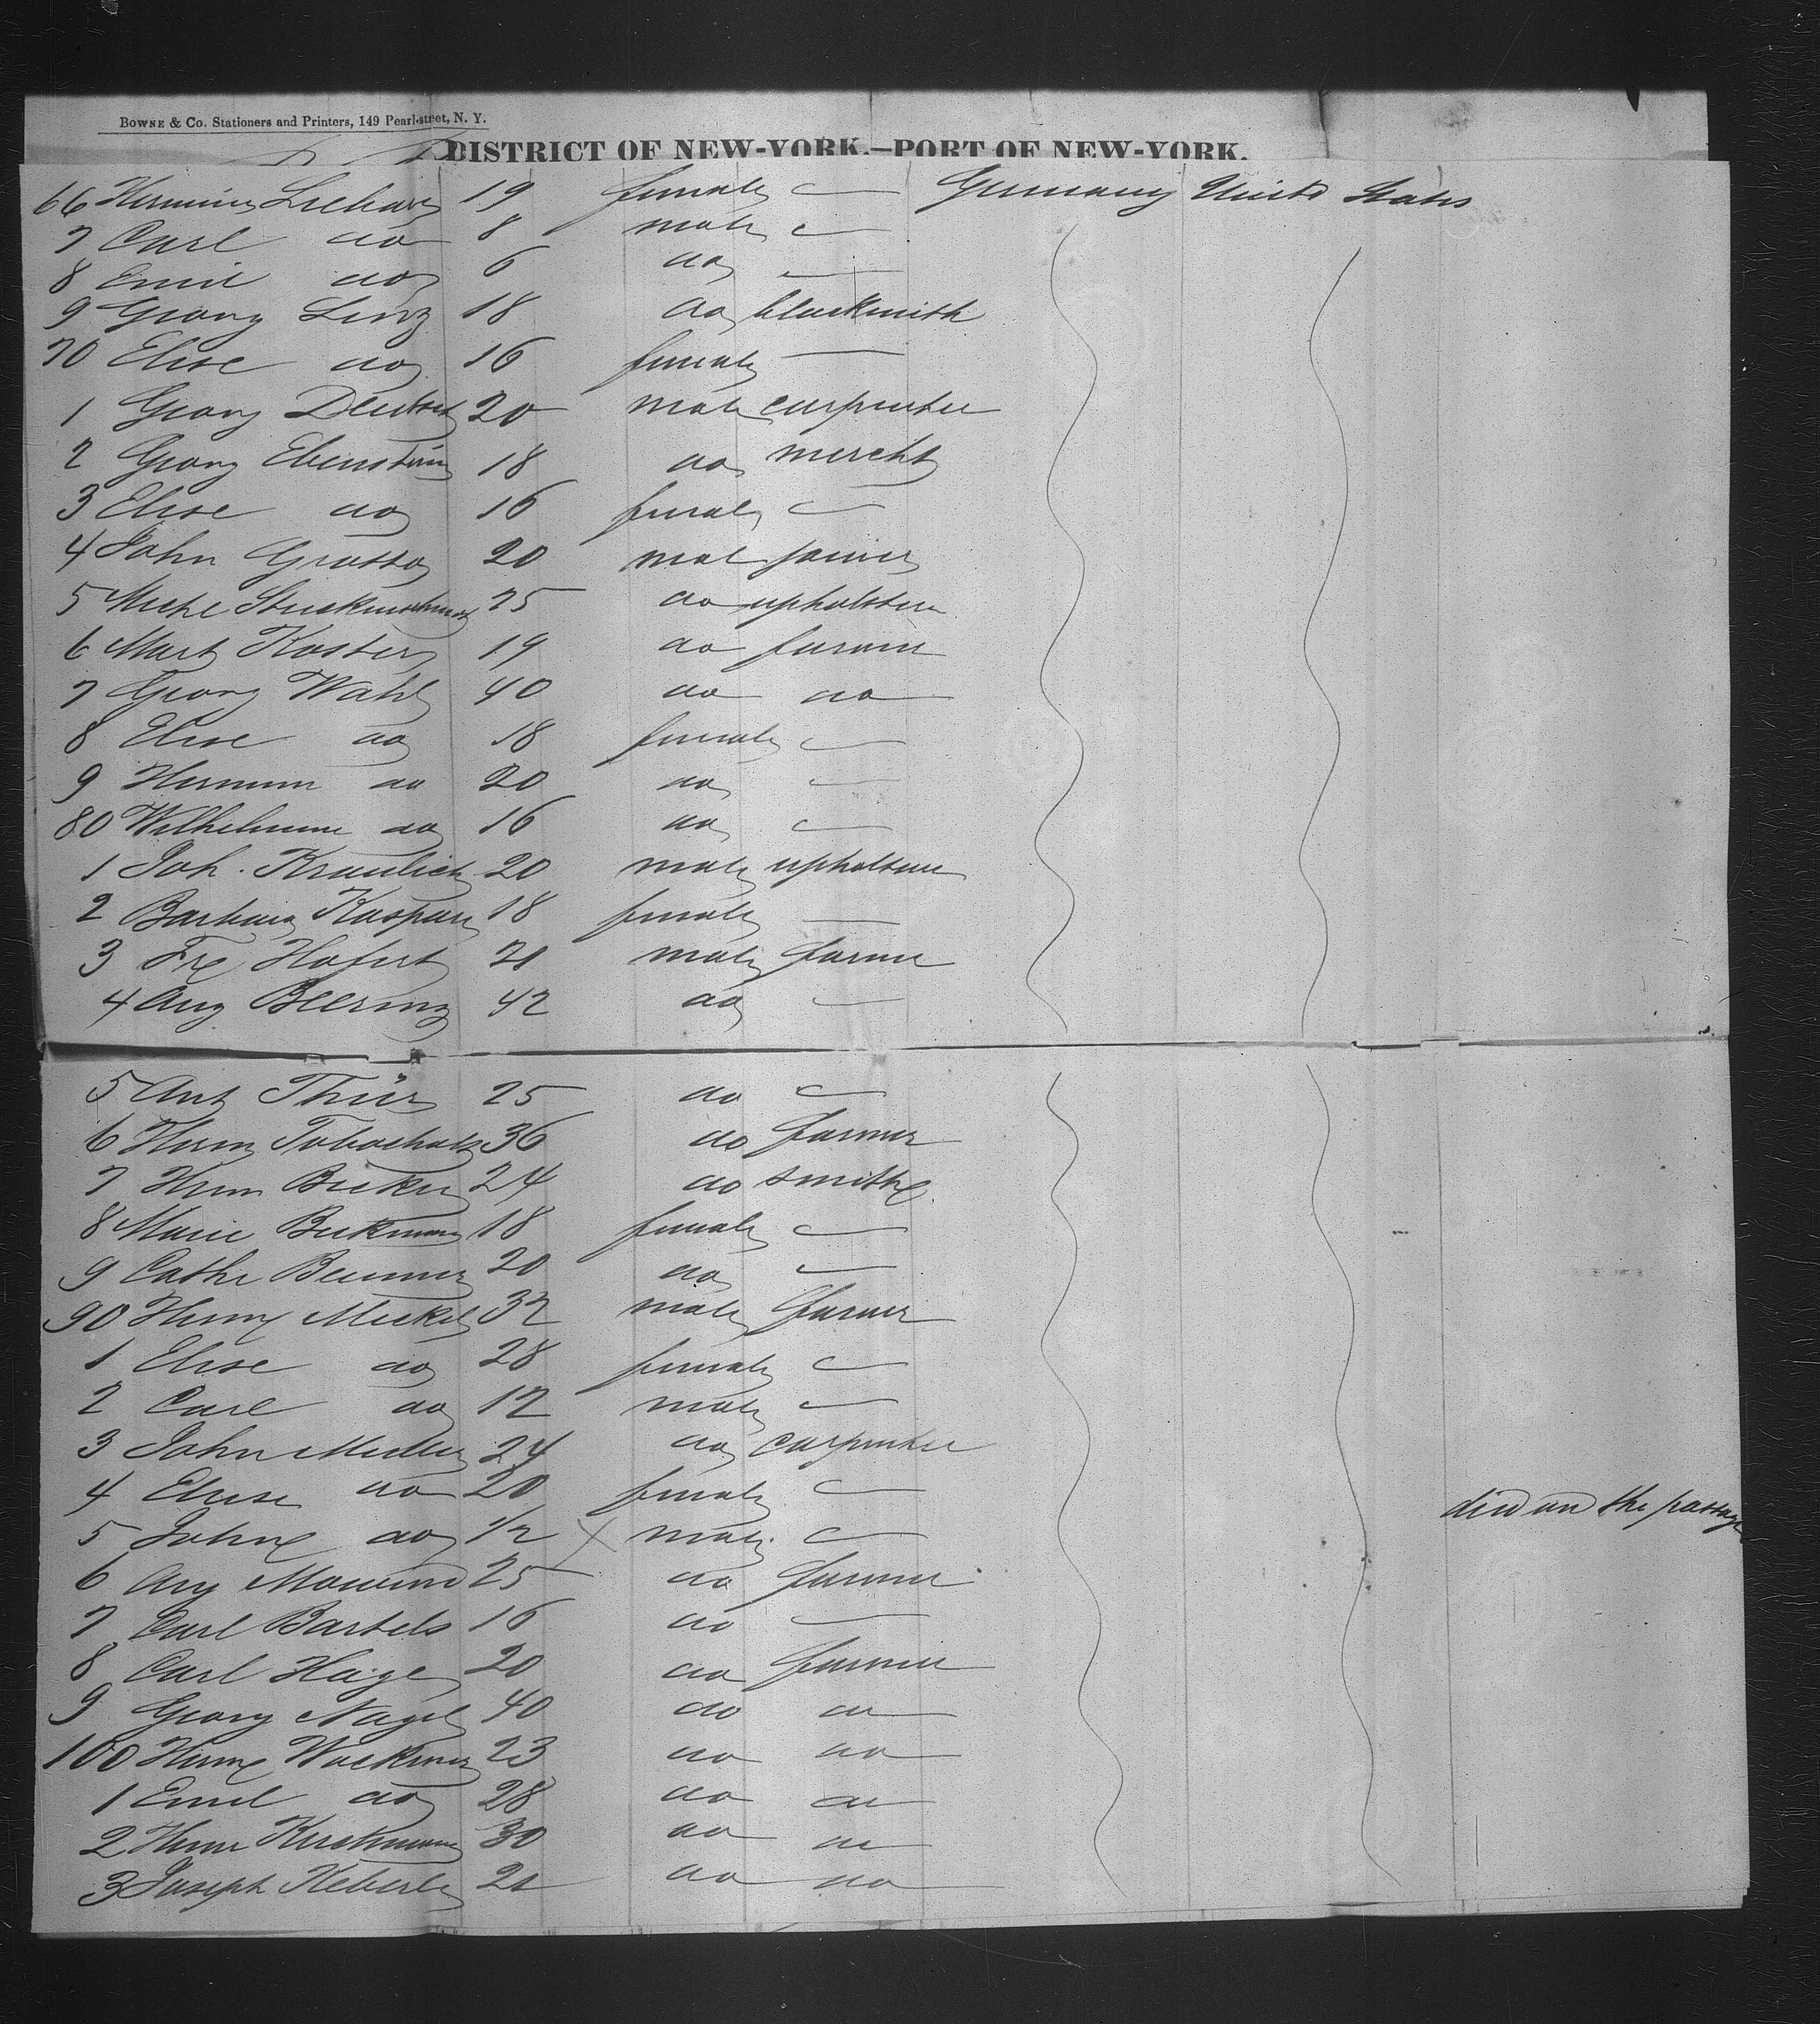 BOWNE & Co. Stationers and Printers, 149 Pearl-street, N. Y.
DISTRICT OF NEW-YORK.—PORT OF NEW-YORK.
66 19 female — Germany United States
7 Carl do 8 male —
8 Emil do 6 do —
9 Georg Linz 18 do blacksmith
70 Elise do 16 female —
1 Georg 20 male carpenter
2 Georg Ebenstein 18 do mercht
3 Elise do 16 female —
4 John Grosso 20 male joiner
5 25 do upholsterer
6 Mart Koster 19 do farmer
7 Georg Wahl 40 do do
8 Elise do 18 female —
9 do 20 do —
80 Wilhelmine do 16 do —
1 Joh. Kraulich 20 male upholsterer
2 Kaspar 18 female —
3 Hofert 21 male farmer
4 Aug 42 do —
5 Ant 25 do —
6 Herm 36 do farmer
7 Herm 24 do smith
8 Marie 18 female —
9 Cathe 20 do —
90 Herm Meckel 32 male farmer
1 Elise do 28 female —
2 Carl do 12 male —
3 John Muller 24 do carpenter
4 Elise do 20 female —
5 John do 1/2 X male — died on the passage
6 25 do farmer
7 Carl Bartels 16 do —
8 Carl Hage 20 do farmer
9 Georg Nagel 40 do do
100 Herm 23 do do
1 Emil do 28 do do
2 Herm 30 do do
3 Joseph Heberle 21 do do